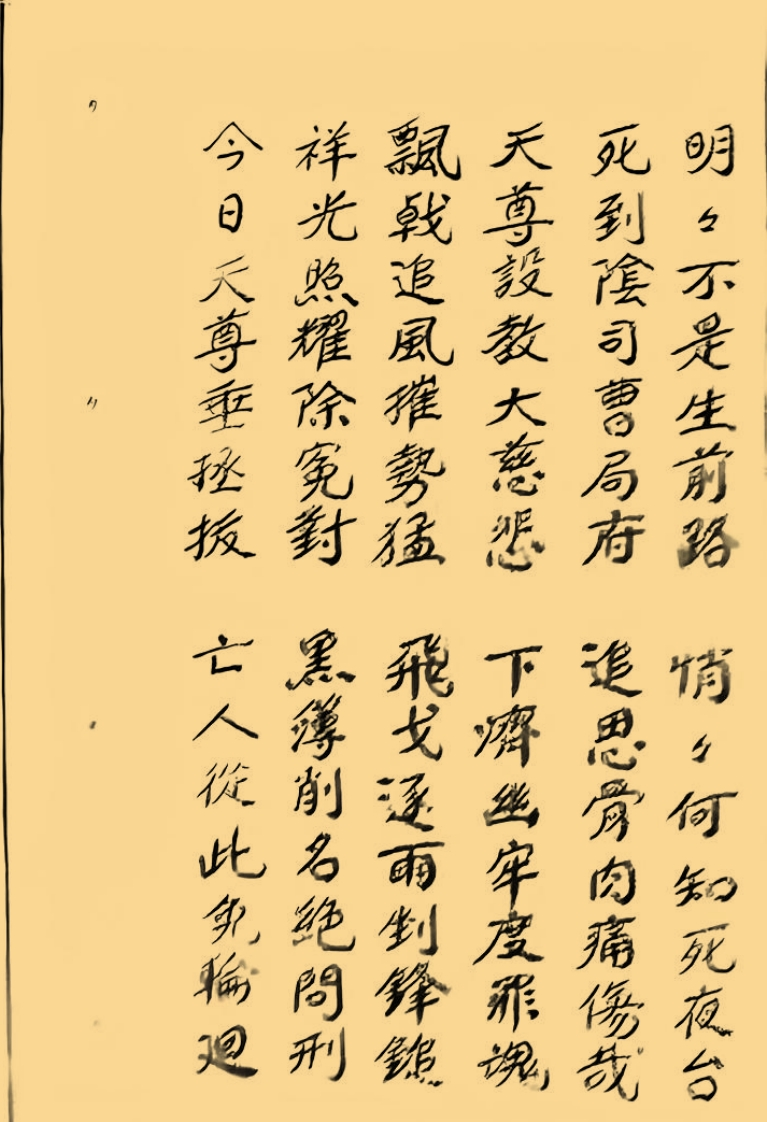 明々不是生前路　悄々何知死夜台
死到陰司曹局府　追思骨肉痛傷哉
天尊設教大慈悲　下濟幽牢度罪魂
飄戟追風摧勢猛　飛戈逐雨剉鋒鎚
祥光照耀除冤對　黑簿削名絕問刑
今日天尊垂拯拔　亡人從此免輪廻